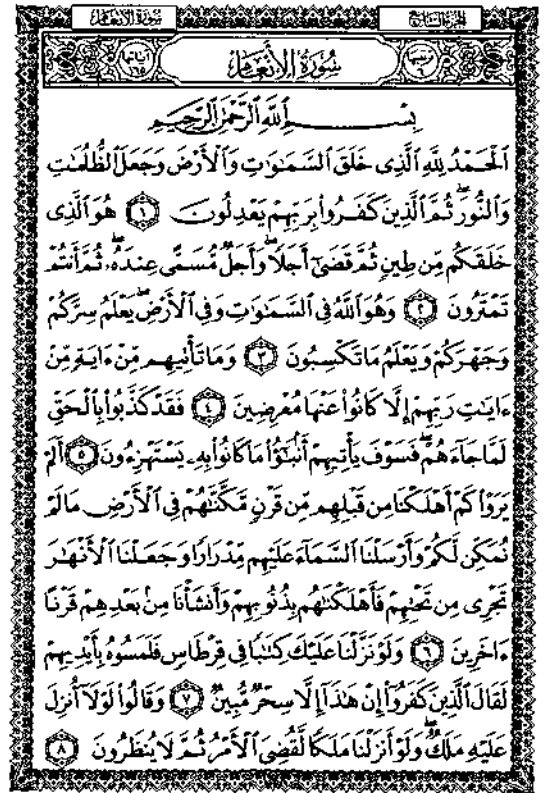 الجزء السابع
سورة الأنعام
ترتيبها ٦
سُورَةُ الأَنْعَامِ
آياتها ١٦٥
بِسْمِ ٱللَّهِ ٱلرَّحْمَٰنِ ٱلرَّحِيمِ
ٱلْحَمْدُ لِلَّهِ ٱلَّذِى خَلَقَ ٱلسَّمَٰوَٰتِ وَٱلْأَرْضَ وَجَعَلَ ٱلظُّلُمَٰتِ
وَٱلنُّورَ ۖ ثُمَّ ٱلَّذِينَ كَفَرُوا۟ بِرَبِّهِمْ يَعْدِلُونَ ١ هُوَ ٱلَّذِى
خَلَقَكُم مِّن طِينٍ ثُمَّ قَضَىٰٓ أَجَلًا ۖ وَأَجَلٌ مُّسَمًّى عِندَهُۥ ۖ ثُمَّ أَنتُمْ
تَمْتَرُونَ ٢ وَهُوَ ٱللَّهُ فِى ٱلسَّمَٰوَٰتِ وَفِى ٱلْأَرْضِ ۖ يَعْلَمُ سِرَّكُمْ
وَجَهْرَكُمْ وَيَعْلَمُ مَا تَكْسِبُونَ ٣ وَمَا تَأْتِيهِم مِّنْ ءَايَةٍ مِّنْ
ءَايَٰتِ رَبِّهِمْ إِلَّا كَانُوا۟ عَنْهَا مُعْرِضِينَ ٤ فَقَدْ كَذَّبُوا۟ بِٱلْحَقِّ
لَمَّا جَآءَهُمْ ۖ فَسَوْفَ يَأْتِيهِمْ أَنۢبَٰٓؤُا۟ مَا كَانُوا۟ بِهِۦ يَسْتَهْزِءُونَ ٥ أَلَمْ
يَرَوْا۟ كَمْ أَهْلَكْنَا مِن قَبْلِهِم مِّن قَرْنٍ مَّكَّنَّٰهُمْ فِى ٱلْأَرْضِ مَا لَمْ
نُمَكِّن لَّكُمْ وَأَرْسَلْنَا ٱلسَّمَآءَ عَلَيْهِم مِّدْرَارًا وَجَعَلْنَا ٱلْأَنْهَٰرَ
تَجْرِى مِن تَحْتِهِمْ فَأَهْلَكْنَٰهُم بِذُنُوبِهِمْ وَأَنشَأْنَا مِنۢ بَعْدِهِمْ قَرْنًا
ءَاخَرِينَ ٦ وَلَوْ نَزَّلْنَا عَلَيْكَ كِتَٰبًا فِى قِرْطَاسٍ فَلَمَسُوهُ بِأَيْدِيهِمْ
لَقَالَ ٱلَّذِينَ كَفَرُوٓا۟ إِنْ هَٰذَآ إِلَّا سِحْرٌ مُّبِينٌ ٧ وَقَالُوا۟ لَوْلَآ أُنزِلَ
عَلَيْهِ مَلَكٌ ۖ وَلَوْ أَنزَلْنَا مَلَكًا لَّقُضِىَ ٱلْأَمْرُ ثُمَّ لَا يُنظَرُونَ ٨